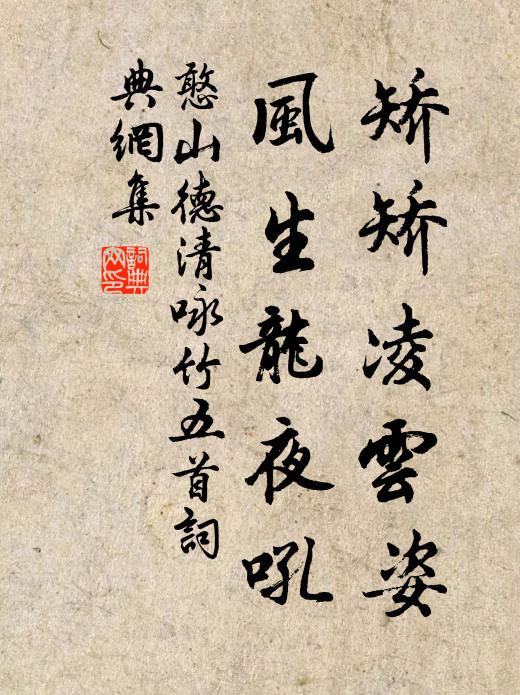 矯矯凌雲姿
風生龍夜吼
憨山德清咏竹五首詞
典網集
詞典網印